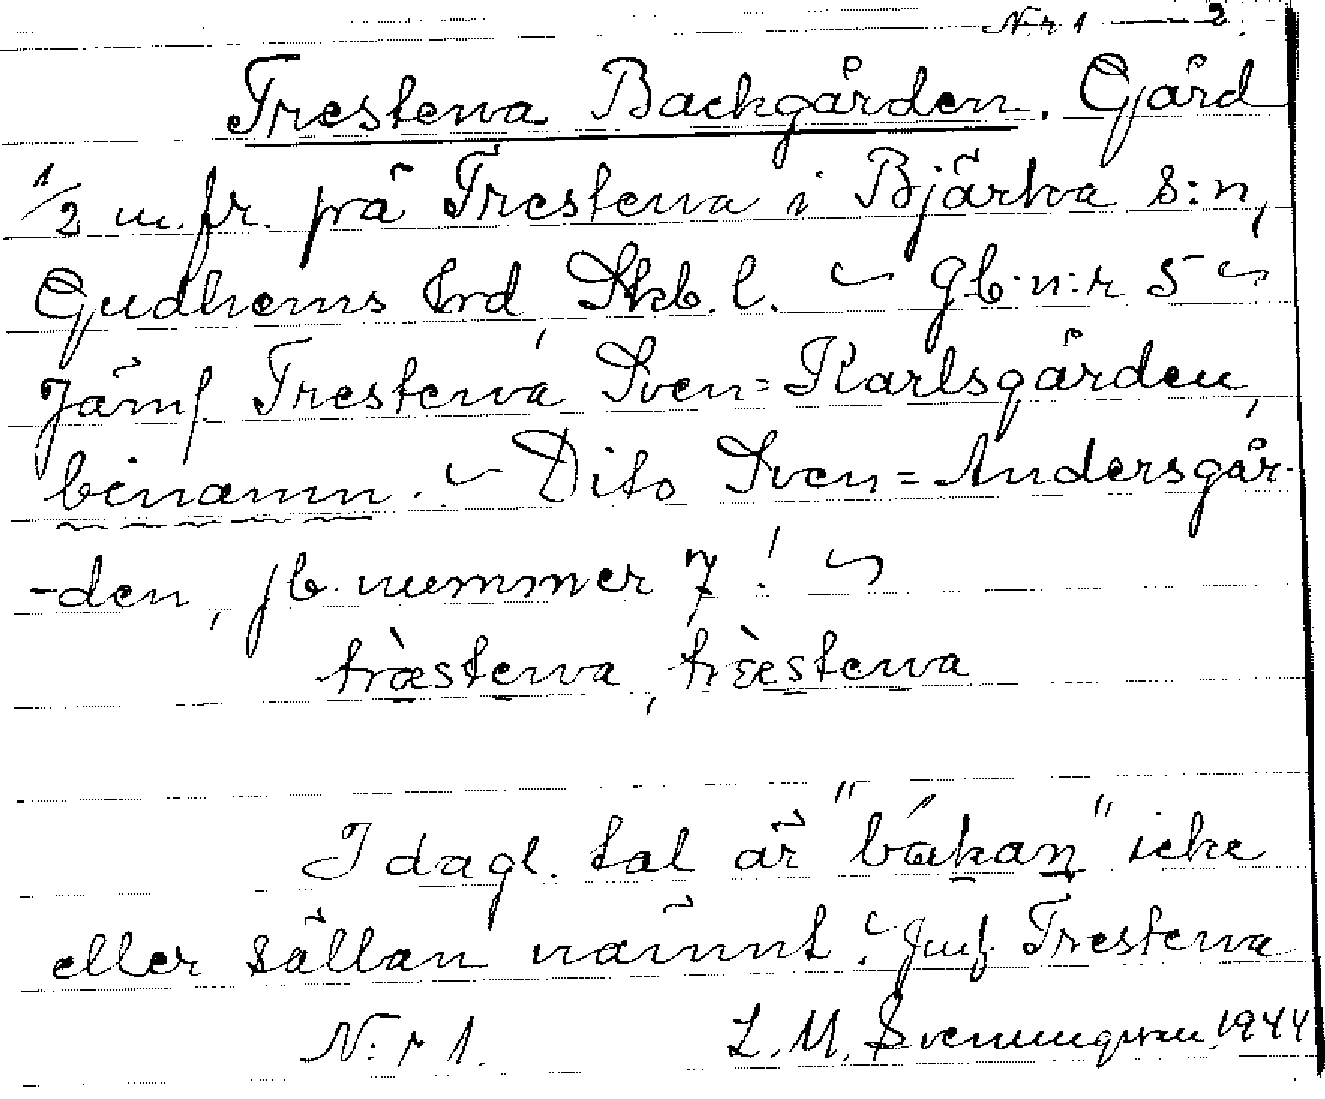 N:r 1 — 2.
Trestena Backgården. Gård
1/2 m. fr. på Trestena i Bjärka s:n,
Gudhems hrd, Skb. l. ~ Jb. n:r 5 ~
Jämf Trestena Sven=Karlsgården,
binamn. ~ Dito Sven=Andersgår-
-den, jb. nummer 7! ~
træ̀stena, træ̀stena
I dagl. tal är "bákan" icke
eller sällan nämnt. Jmf Trestena
N:r 1. L. M. Svenungsson 1944